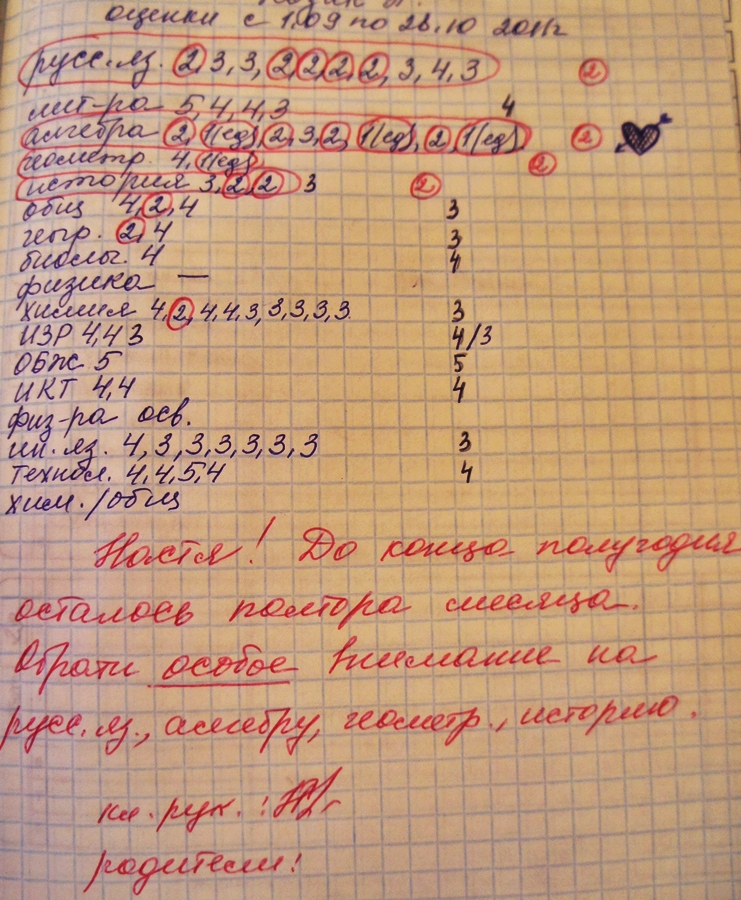 оценки с 1.09 по 28.10 2011г
русс.яз. 2, 3, 3, 2, 2, 2, 2, 3, 4, 3 2
лит-ра 5, 4, 4, 3 4
алгебра 2, 1(ед), 2, 3, 2, 1(ед), 2, 1(ед). 2
геометр. 4, 1(ед) 2
история 3, 2, 2 3 2
общ 4, 2, 4 3
геогр. 2, 4 3
биолог. 4 4
физика —
химия 4, 2, 4, 4, 3, 3, 3, 3, 3 3
ИЗР 4, 4 3 4/3
ОБЖ 5 5
ИКТ 4, 4 4
физ-ра осв.
ин. яз. 4, 3, 3, 3, 3, 3, 3 3
технол. 4, 4, 5, 4 4
хим./общ
Настя! До конца полугодия
осталось полтора месяца.
Обрати особое внимание на
русс. яз., алгебру, геометр., историю.
кл. рук. :
родители: